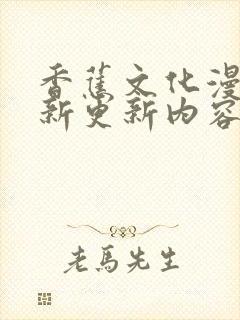 香蕉文化漫
新更新内容
老馬先生